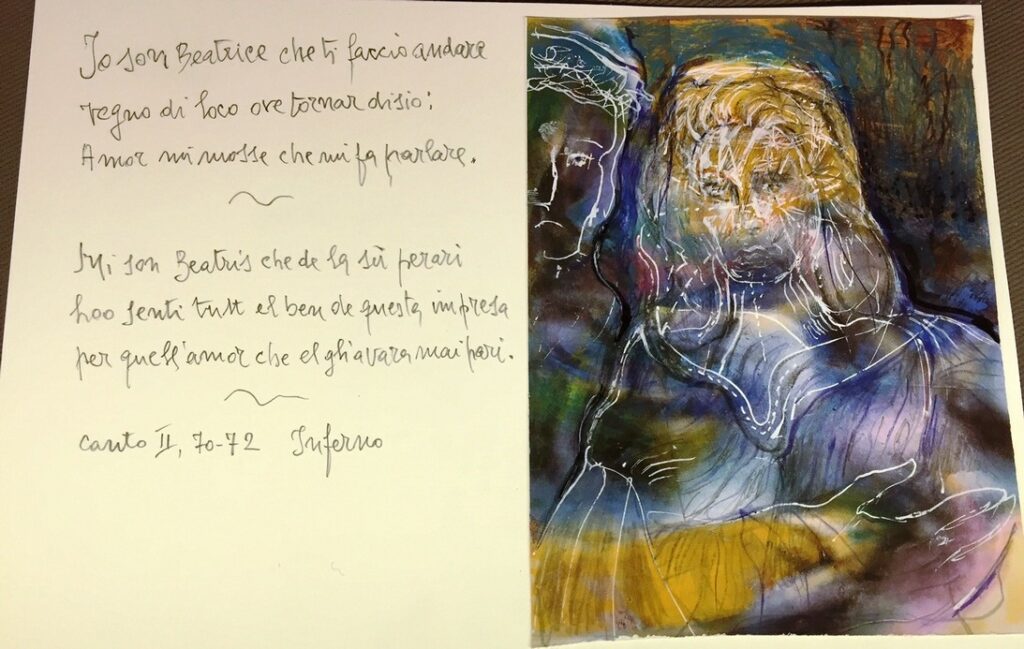 Io son Beatrice che ti faccio andare
vegno di loco ove tornar disio;
Amor mi mosse che mi fa parlare.
Mi son Beatris che de la sù perari
hoo senti tutt el ben de questa impresa
per quell'amor che el gh'avarà mai pari.
Canto II, 70-72 Inferno